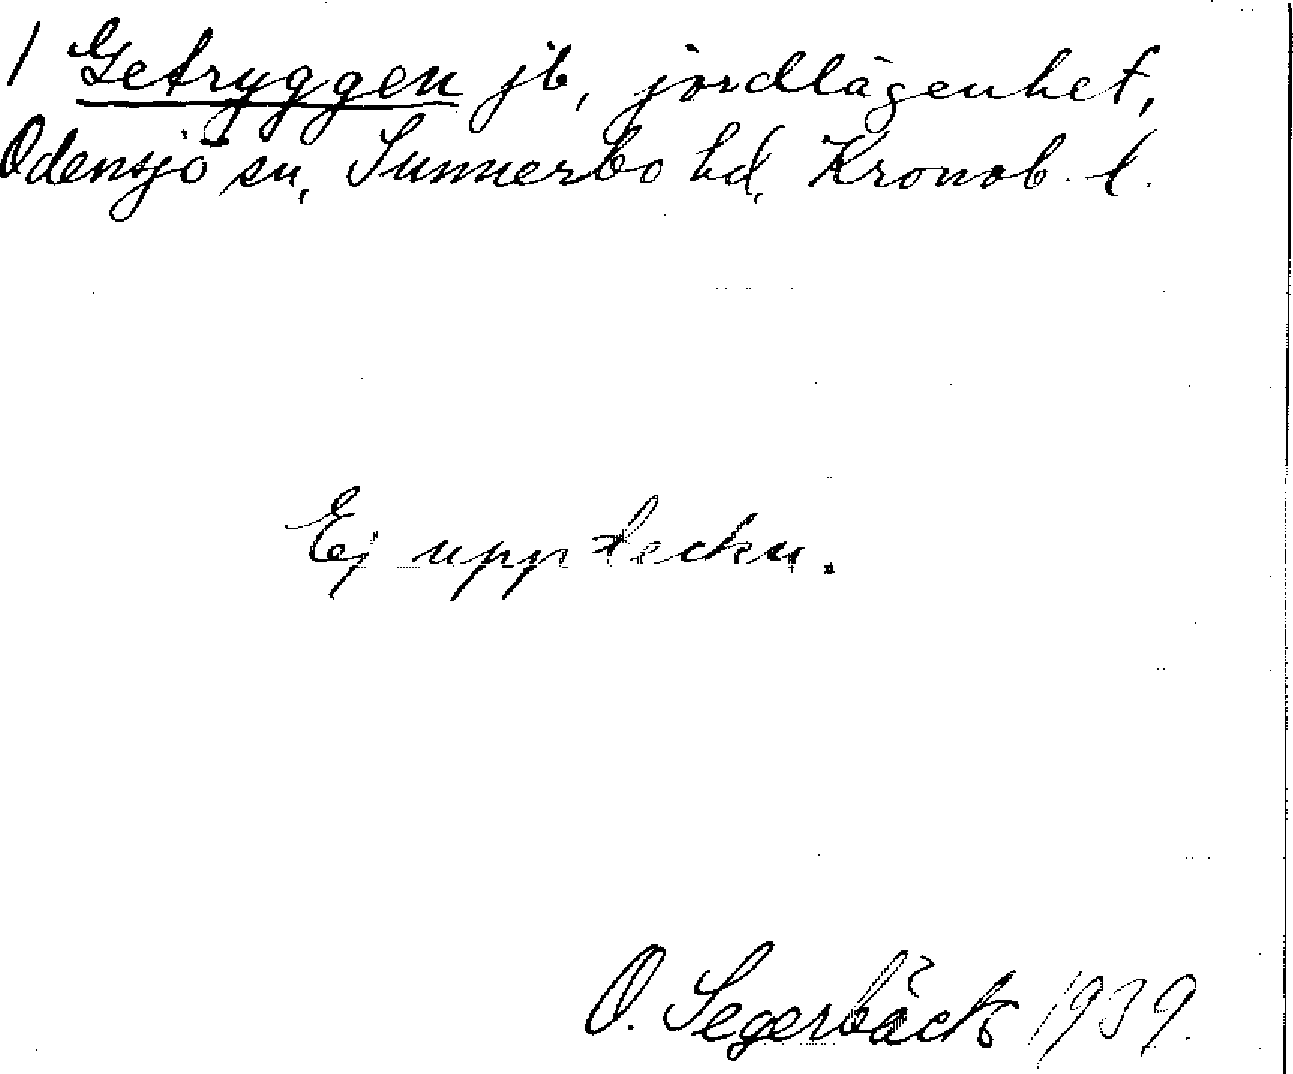 / Getryggen jb, jordlägenhet,
Odensjö sn, Sunnerbo hd, Kronob. l.
Ej uppteckn.
O. Segerbäck 1939.